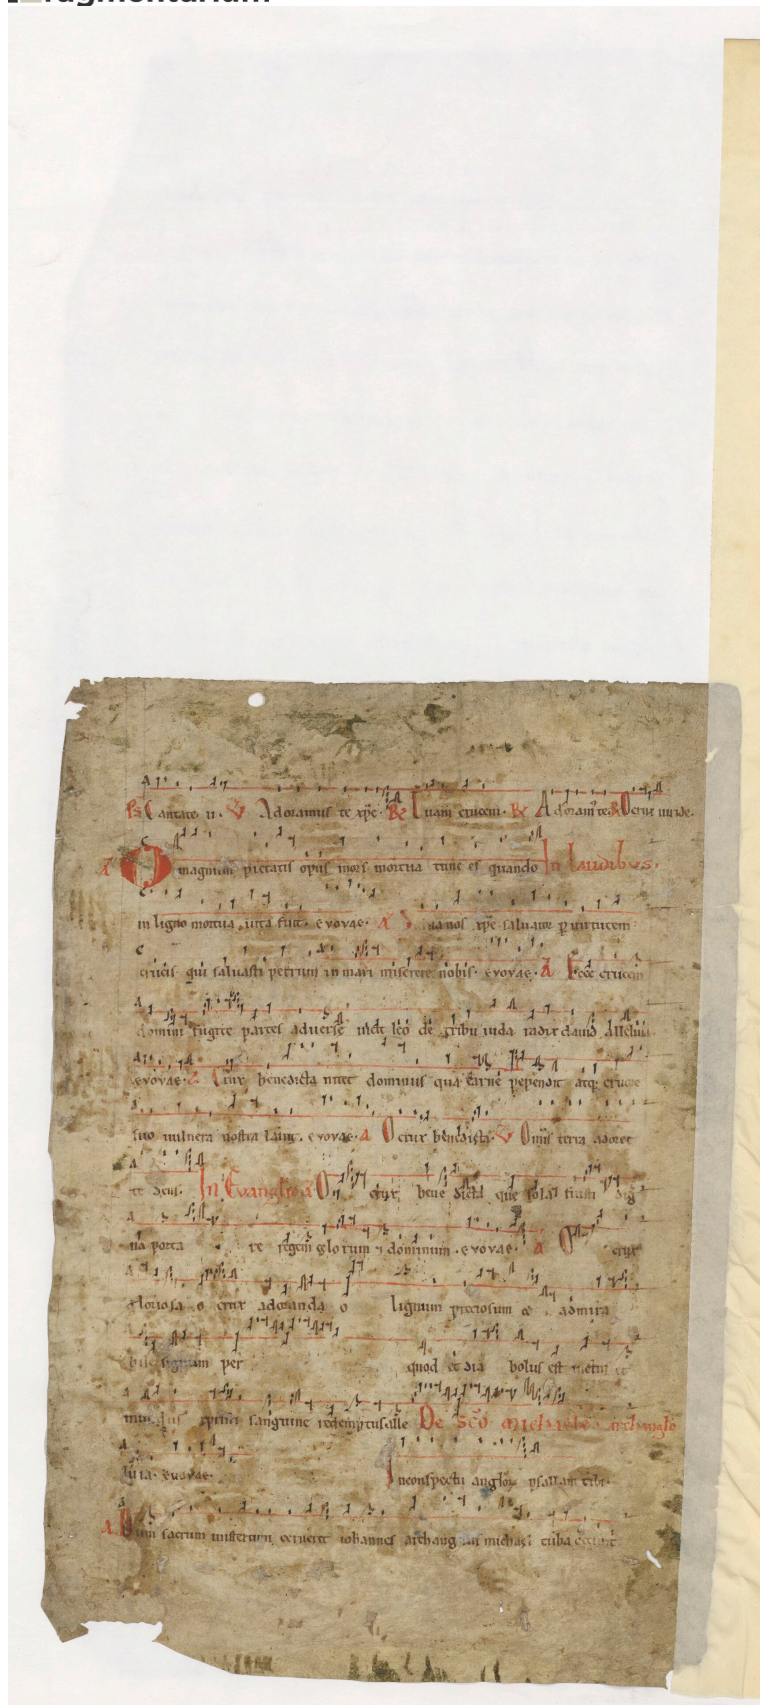 Ps Cantate. ii. V Adoramus te xpe. R Tuam crucem. R Adoram te. R O crux uiride.
A O magnum pietatis opus mors mortua tunc es quando In laudibus.
in ligno mortua uita fuit. evovae. A nos xpe saluator p uirtutem
crucis qui saluasti petrum in mari miserere nobis. evovae. A Ecce crucem
domini fugite partes aduerse uicit leo de tribu iuda radix dauid alleluia
evovae. A Crux benedicta nitet dominus qua carne pependit atq; cruore
suo uulnera nostra lauit. evovae. A O crux benedicta. V Omis terra adoret
te deus. In Evanglio A O crux bene dicta que sola fuisti dig
na porta re regem glorum dominum. evovae. A O crux
gloriosa o crux adoranda o lignum preciosum et admira
bile signum per quod et dia bolus est uictus et
mundus xpisti sanguine redemptus alle De sco michaele archanglo
luia. evovae. In conspectu anglor psallam tibi.
A Dum sacrum misterium cerneret iohannes archang lus michael tuba cecinit